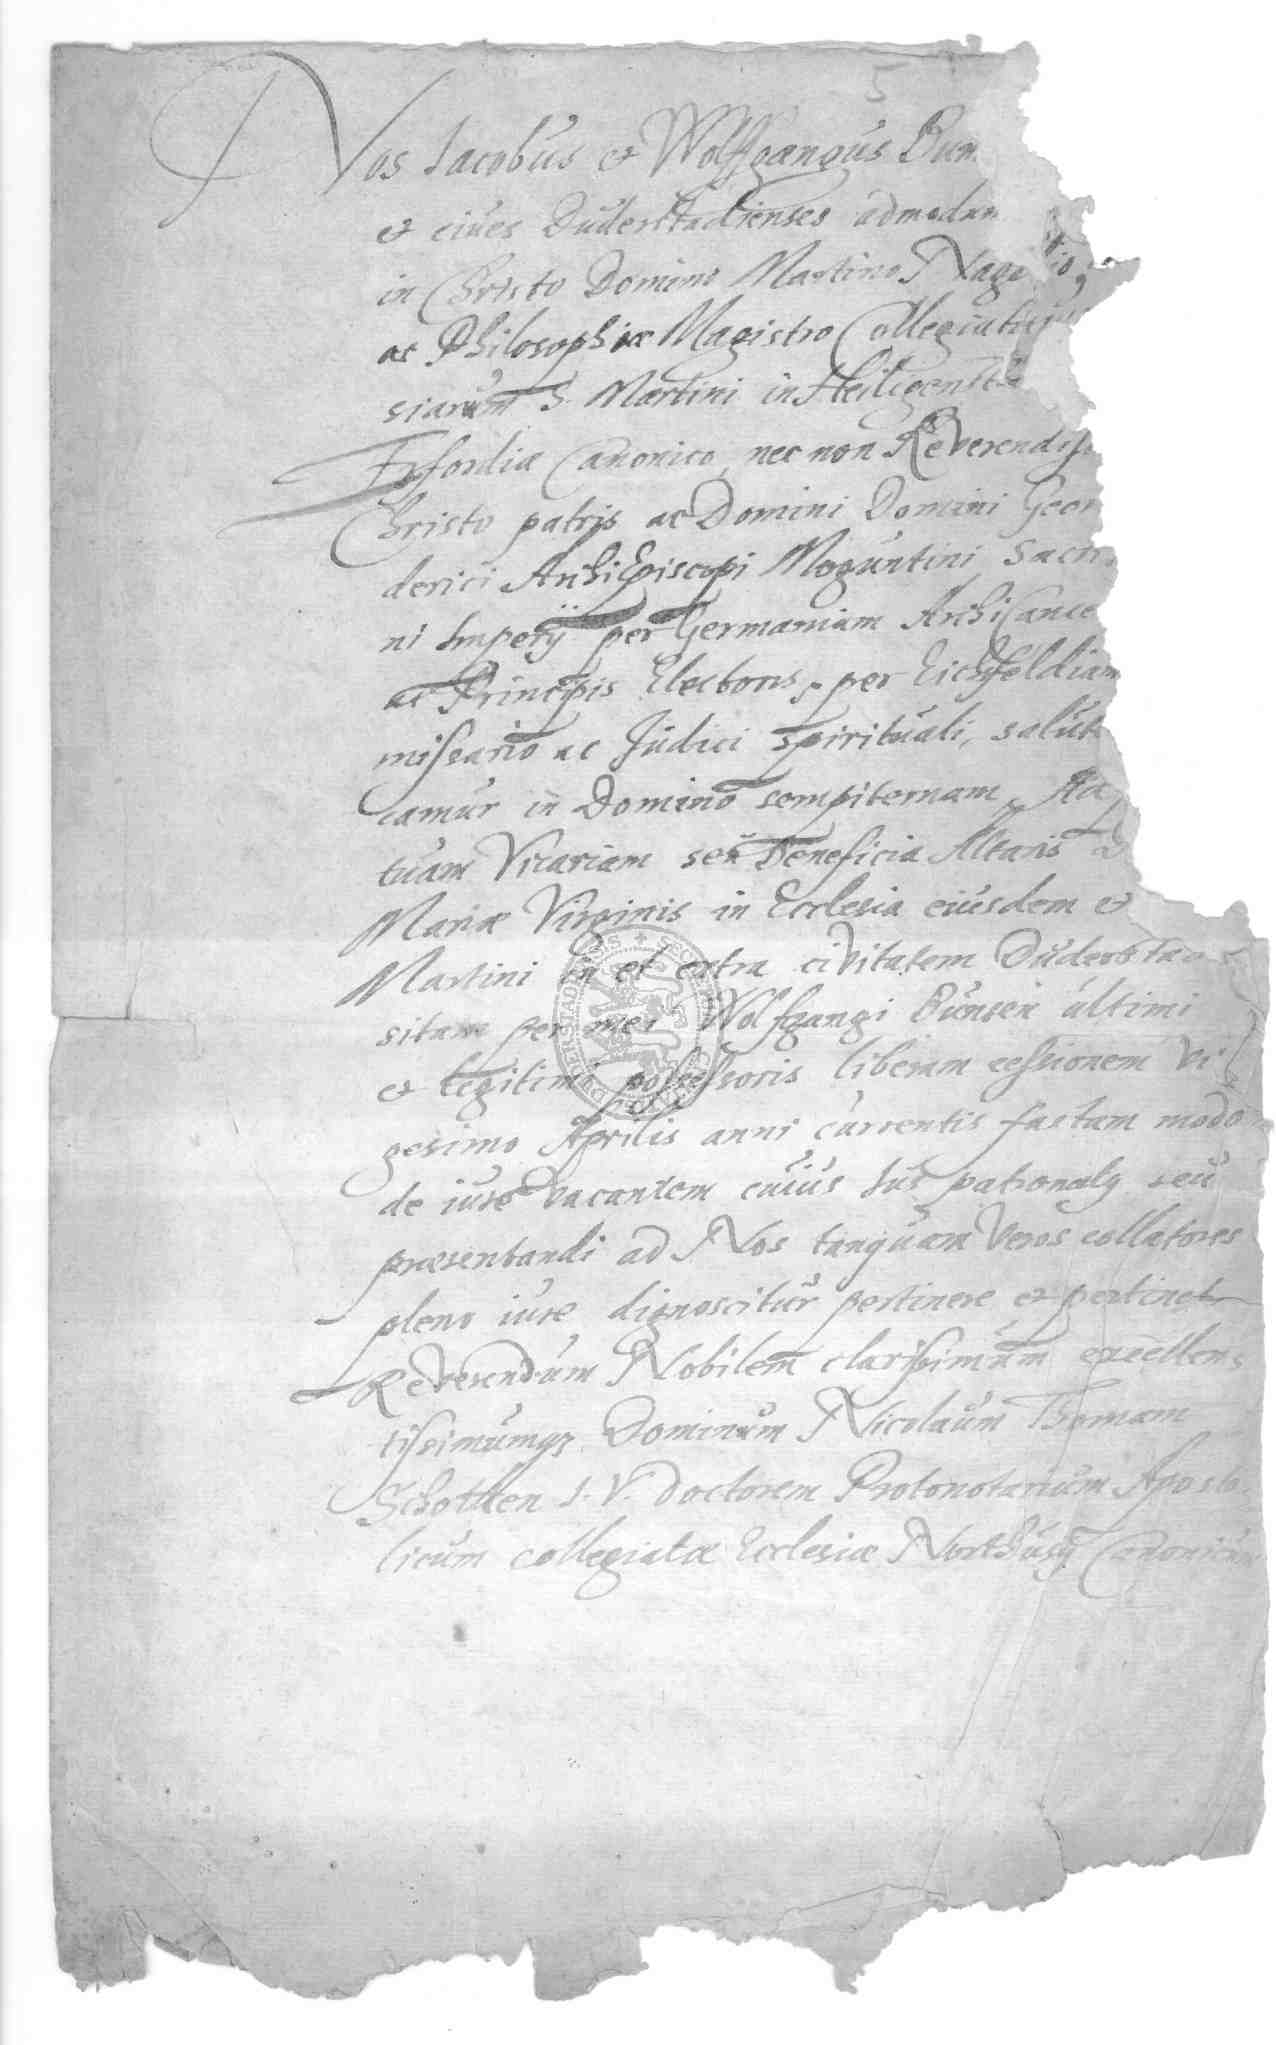 5
Nos Jacobus et Wolffgangus Bun
et cives Duderstadienses admodum
in Christo Domino Martino Nage
ac Philosophiæ Magistro Collegiata
siarum S. Martini in Heiligensta
Erfordiæ Canonico, nec non Reverendiss
Christo patris ac Domini Domini Geor
derici ArchiEpiscopi Moguntini Sacr
ni Imperÿ per Germaniam ArchiCance
ac Principis Electoris, per Eichsfeldiam
missario ac Judici spirituali, salut
camur in Domino sempiternam. Ad
tuam Vicariam seu Beneficia Altaris
Mariæ Virginis in Ecclesia eiusdem et
Martini in et extra civitatem Duderstad
sitam per mei Wolfgangi Bunsen ultimi
et legitimi possessoris liberam cessionem vi
gesimo Aprilis anni currentis factam modo
de iure vacantem cuius Jus patronatg seu
præsentandi ad Nos tanquam veros collatores
pleno iure dignoscitur pertinere et pertinet
Reverendum Nobilem clarissimum excellen-
tissimumqz Dominum Nicolaum Thomam
Schotten J. V. Doctorem Protonotarium Aposto
licum collegiatæ Ecclesiæ Northusÿ Canonicum